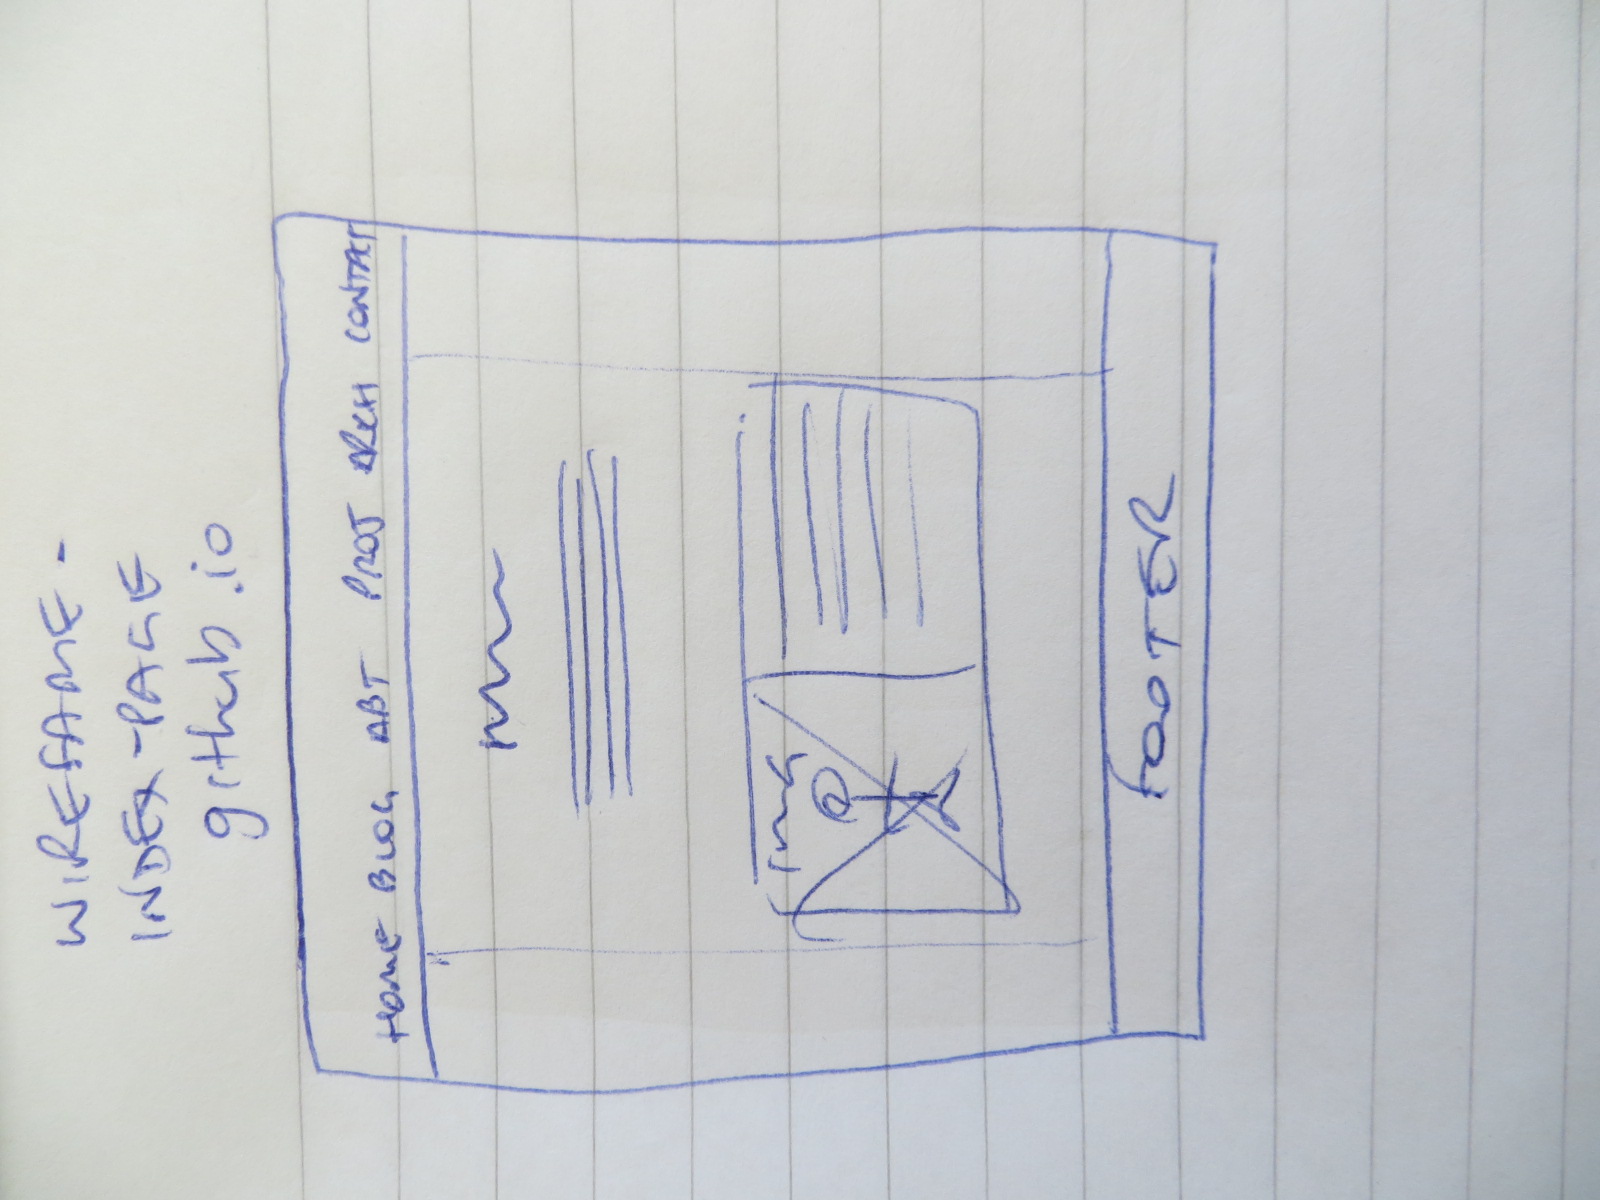 WIREFAME -
INDEX-PAGE
github.io
HOME BLOG ABT PROJ ARCH CONTACT
img
FOOTER